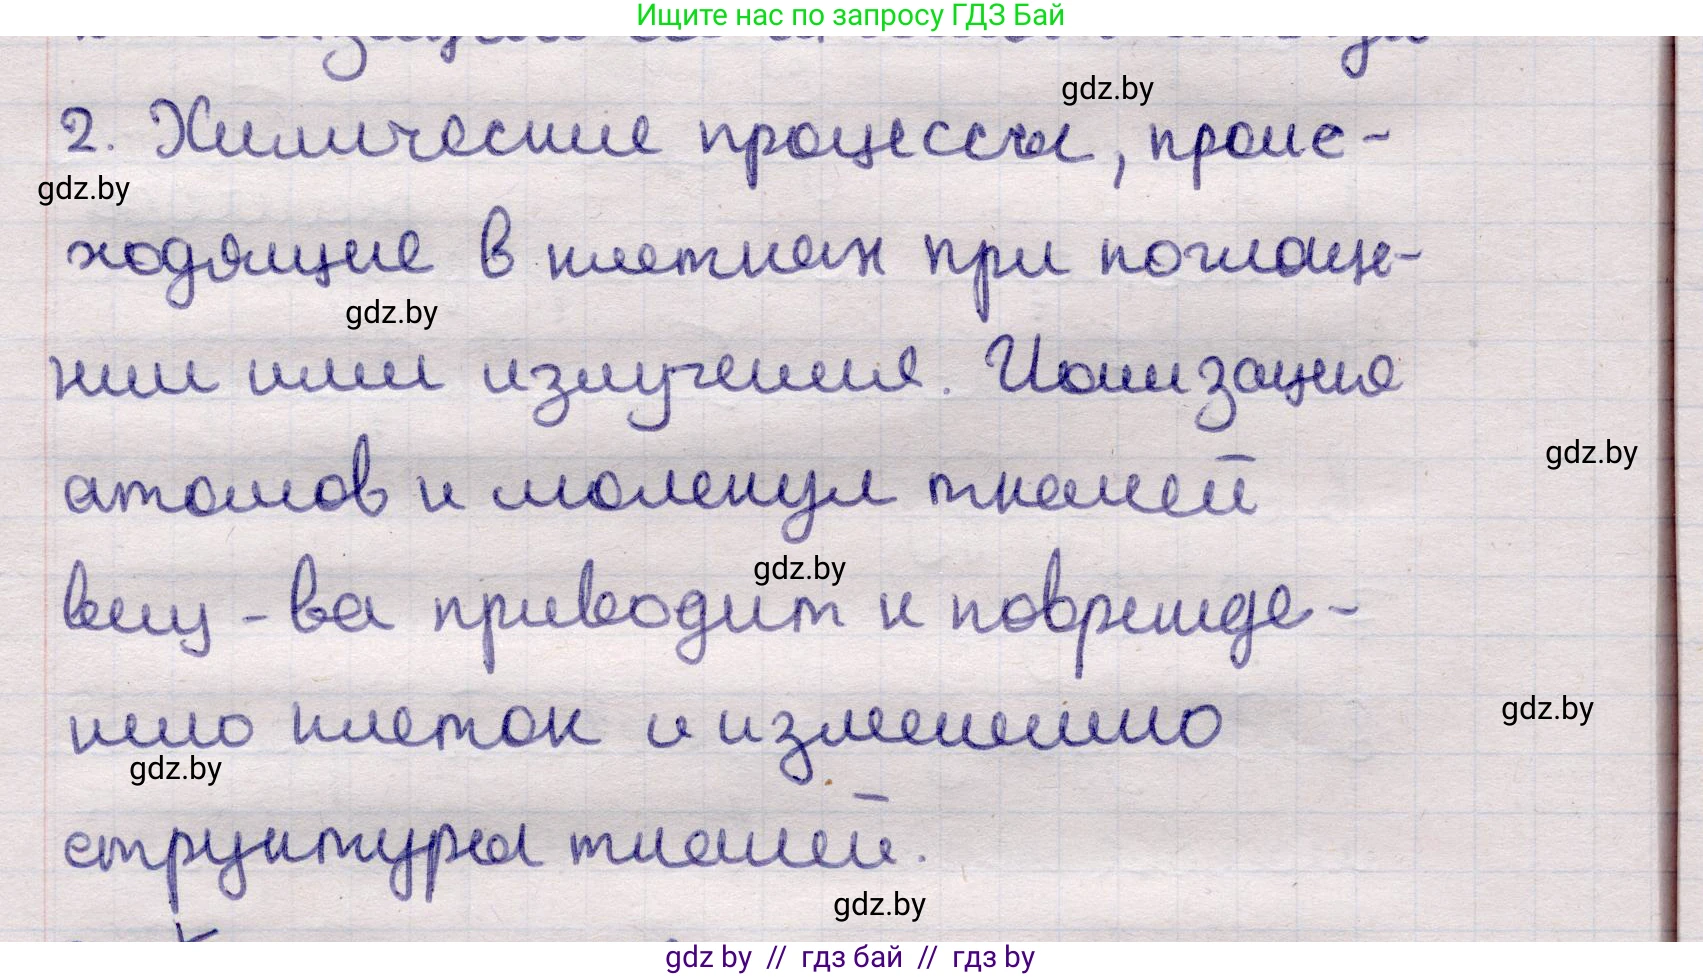 Ищите нас по запросу ГДЗ Бай
gdz.by
2. Химические процессы, проис-
gdz.by
ходящие в клетках при поглаще-
gdz.by
нии ими излучения. Ионизация
gdz.by
атомов и молекул тканей
gdz.by
вещ-ва приводит к поврежде-
нию клеток и изменению
gdz.by
gdz.by
структуры тканей.
gdz.by
gdz by // гдз бай // гдз by